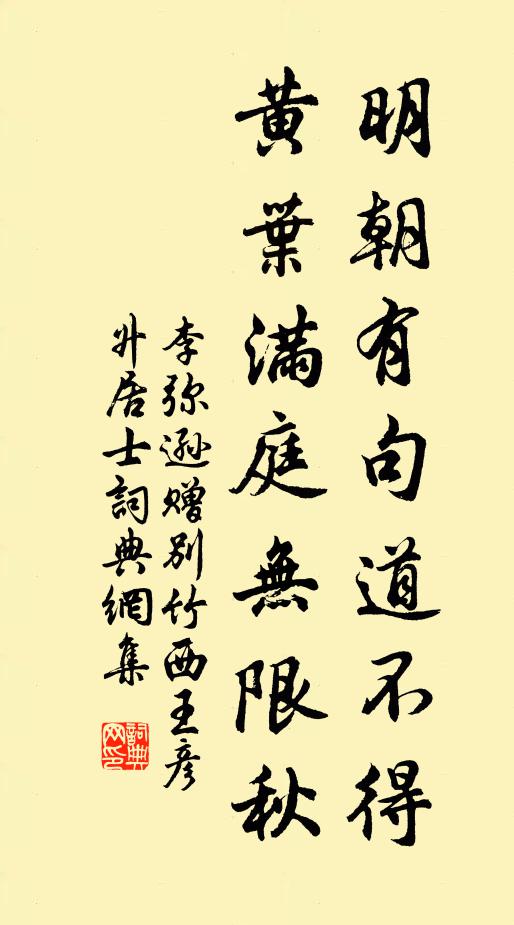 明朝有句道不得
黃葉滿庭無限秋
李弥遜贈別竹西王彥
廾居士詞典網集
詞典
网印